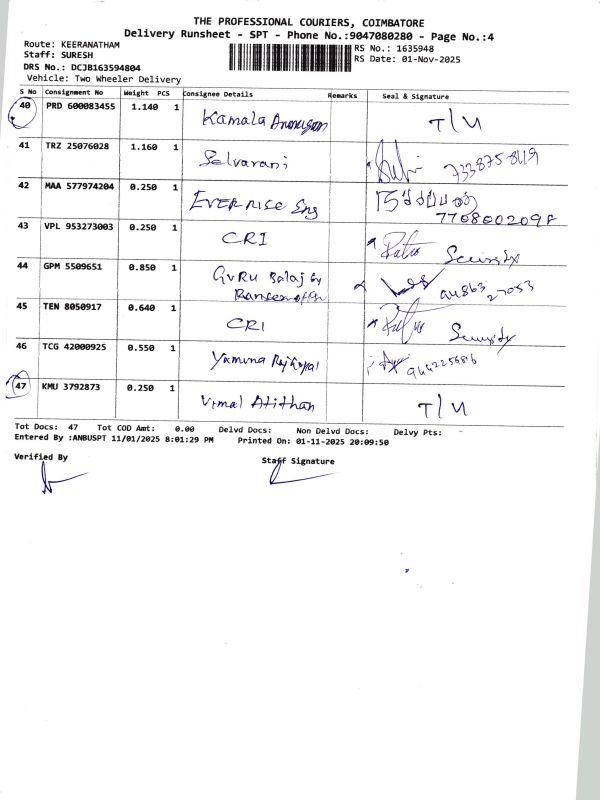 THE PROFESSIONAL COURIERS, COIMBATORE
Delivery Runsheet - SPT - Phone No.:9047080280 - Page No.:4
Route: KEERANATHAM
RS No.: 1635948
Staff: SURESH
RS Date: 01-Nov-2025
DRS No.: DCJB163594804
Vehicle: Two Wheeler Delivery
S No Consignment No Weight PCS Consignee Details Remarks Seal & Signature
40 PRD 600083455 1.140 1 Kamala T/U
41 TRZ 25076028 1.160 1 Selvarani
42 MAA 577974204 0.250 1 EVERRISE Eng
43 VPL 953273003 0.250 1 CRI Security
44 GPM 5509651 0.850 1 GURU Balaji
45 TEN 8050917 0.640 1 CRI Security
46 TCG 42000925 0.550 1 Yamuna
47 KMU 3792873 0.250 1 Vimal T/U
Tot Docs: 47 Tot COD Amt: 0.00 Delvd Docs: Non Delvd Docs: Delvy Pts:
Entered By :ANBUSPT 11/01/2025 8:01:29 PM Printed On: 01-11-2025 20:09:50
Verified By Staff Signature